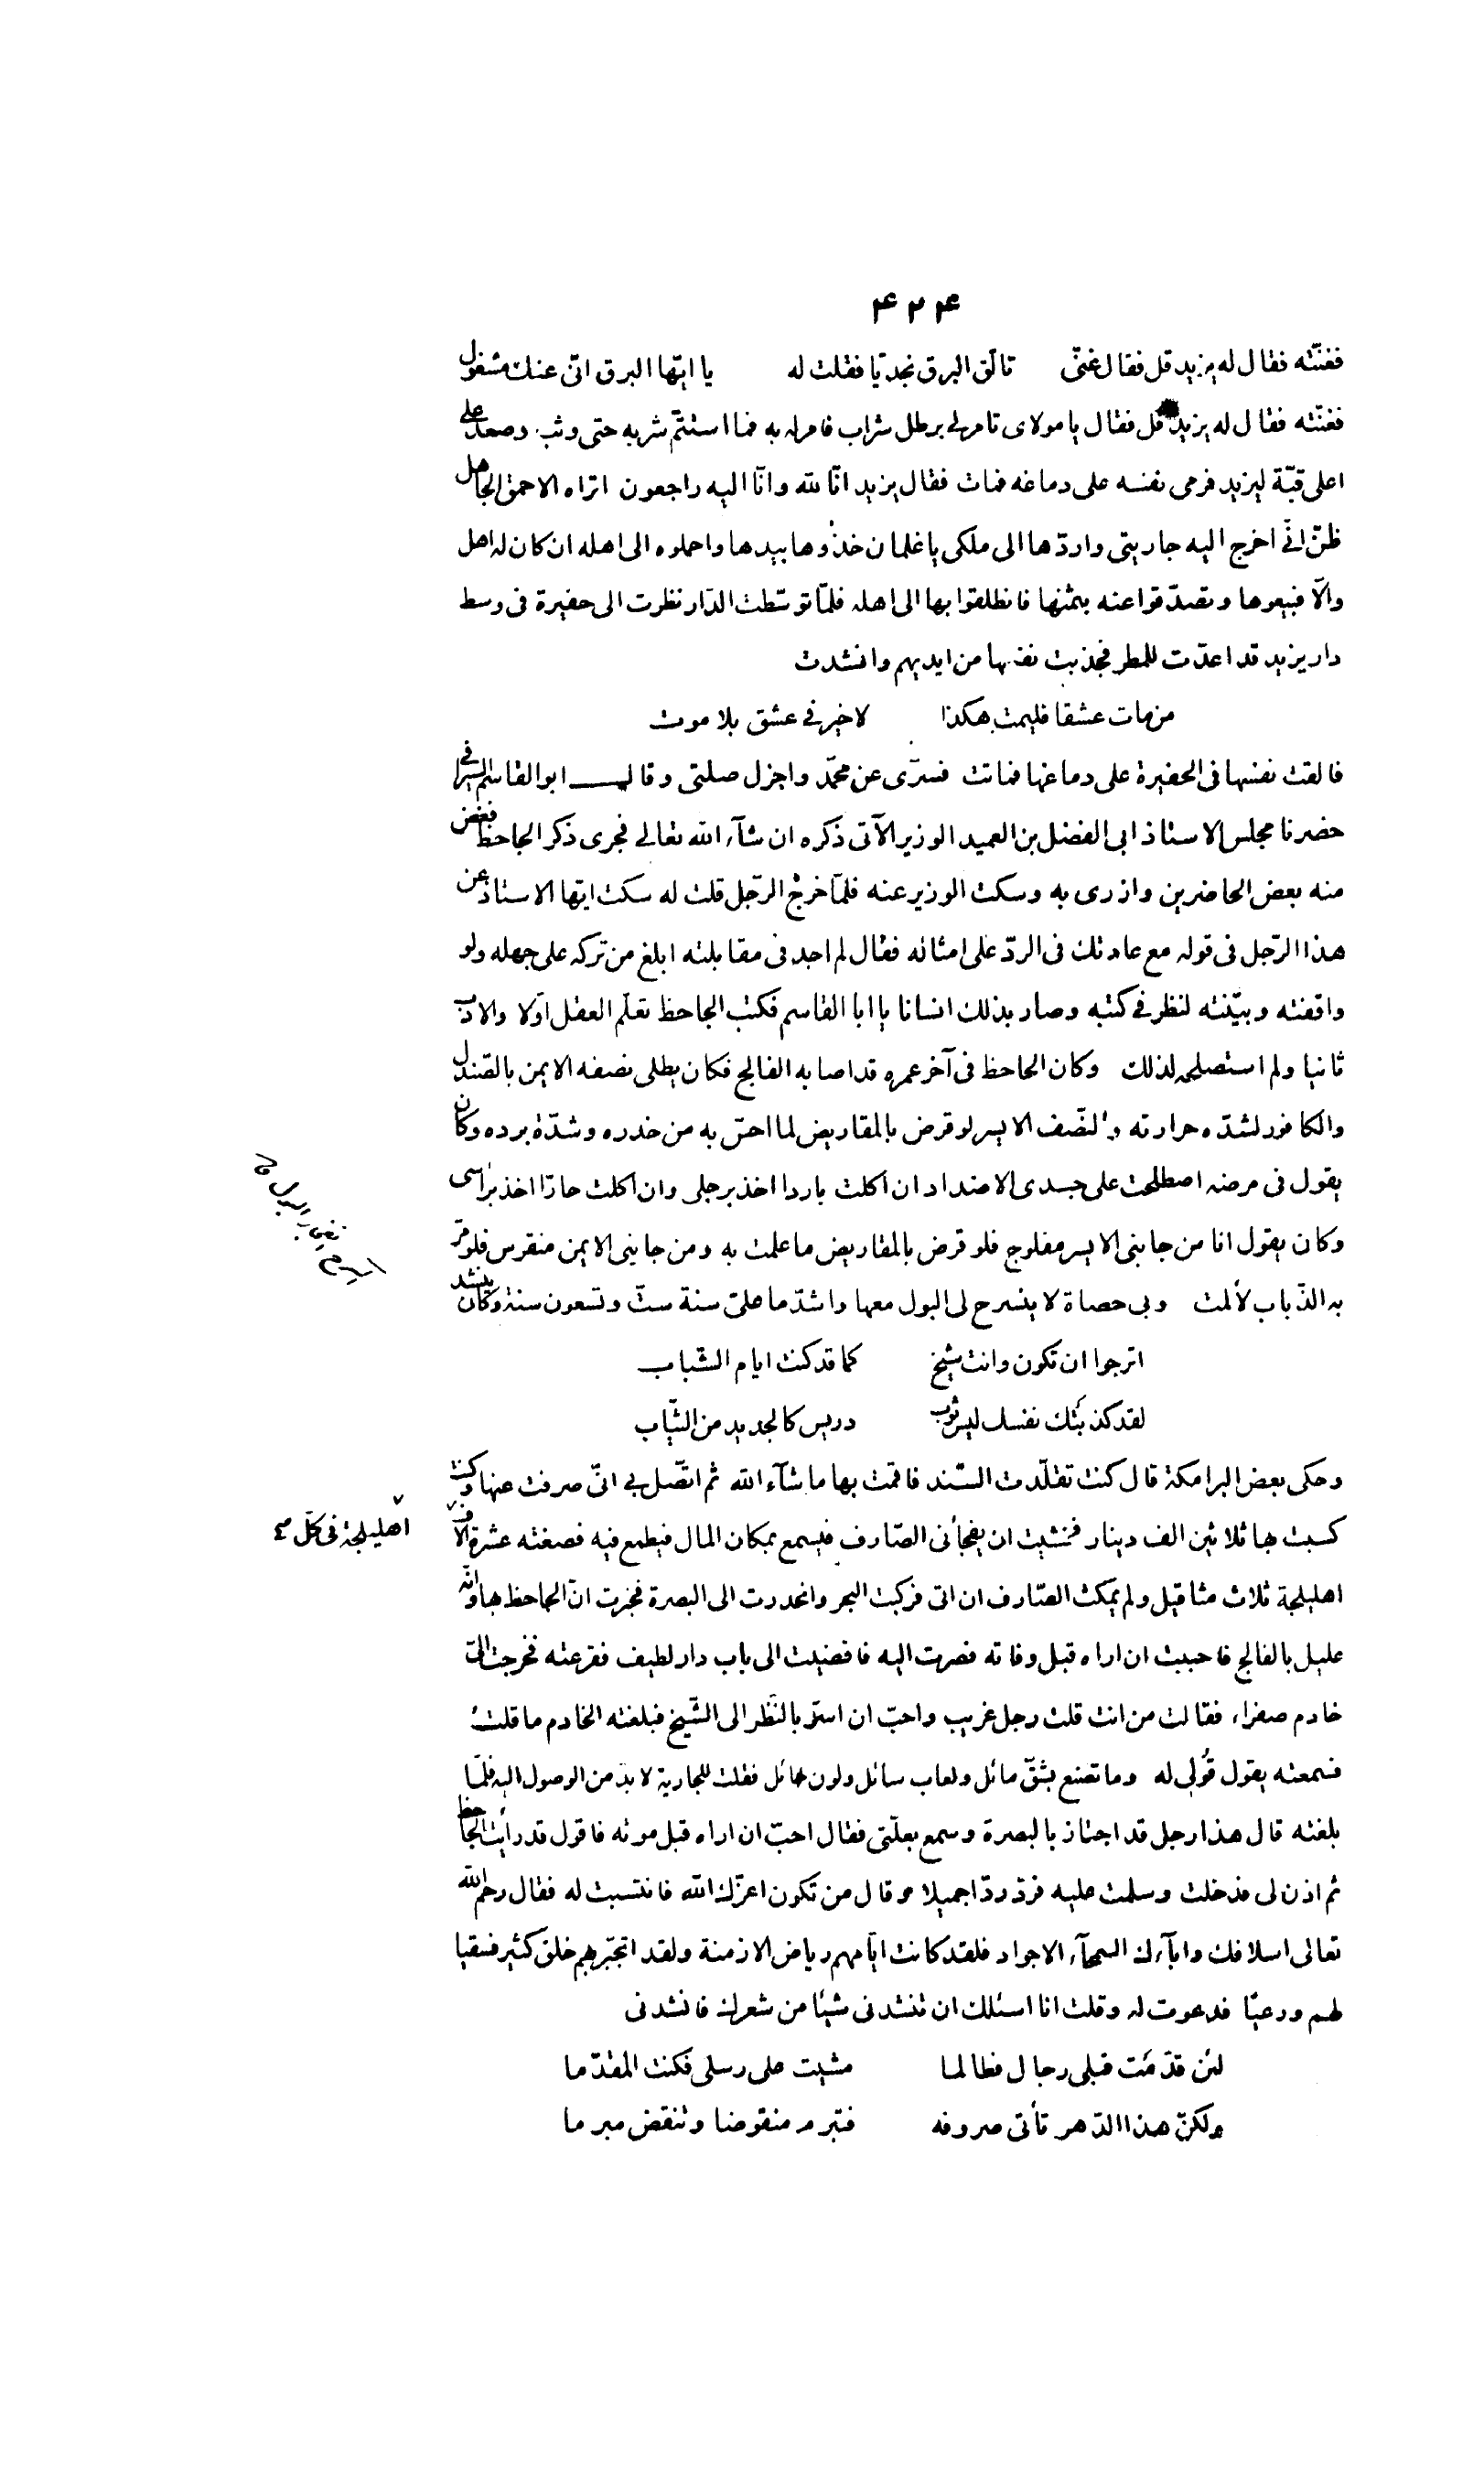 ۴۲۴
فغنّته فقال له يزيد قل فقال غنّى تالّق البرق نجديّا فقلت له يا ايّها البرق انّى عنك مشغول
فغنّته فقال له يزيد قل فقال يا مولاى تامر لى برطل شراب فامر له به فما استتمّ شربه حتى وثب وصعد على
اعلى قبّة ليزيد فرمى نفسه على دماغه فمات فقال يزيد انّا لله وانّا اليه راجعون اتراه الاحمق الجاهل
ظنّ انّى اخرج اليه جاريتى واردّها الى ملكى يا غلمان خذوها بيدها واحملوه الى اهله ان كان له اهل
والّا فبيعوها وتصدّقوا عنه بثمنها فانطلقوا بها الى اهله فلمّا توسّطت الدّار نظرت الى حفيرة فى وسط
دار يزيد قد اعدّت للمطر فجذبت نفسها من ايديهم وانشدت
من مات عشقا فليمت هكذا لا خير فى عشق بلا موت
فالقت نفسها فى الحفيرة على دماغها فماتت فسرّى عن محمّد واجزل صلتى وقال ابو القاسم السيرافى
حضرنا مجلس الاستاذ ابى الفضل بن العميد الوزير الآتى ذكره ان شآء الله تعالى فجرى ذكر الجاحظ فغض
منه بعض الحاضرين وازرى به وسكت الوزير عنه فلمّا خرج الرّجل قلت له سكت ايّها الاستاذ عن
هذا الرّجل فى قوله مع عادتك فى الردّ على امثاله فقال لم اجد فى مقابلته ابلغ من تركه على جهله ولو
واقفته وبيّنته لنظر فى كتبه وصار بذلك انسانا يا ابا القاسم فكتب الجاحظ تعلّم العقل اوّلا والادب
ثانيا ولم استصلحه لذلك وكان الجاحظ فى آخر عمره قد اصابه الفالج فكان يطلى نصفه الايمن بالصّندل
والكافور لشدّه حرارته والنّصف الايسر لو قرض بالمقاريض لما احسّ به من خدره وشدّة برده وكان
يقول فى مرضه اصطلحت على جسدى الاضداد ان اكلت باردا اخذ برجلى وان اكلت حارّا اخذ براسى
وكان يقول انا من جانبى الايسر مفلوج فلو قرض بالمقاريض ما علمت به ومن جانبى الايمن منقرس فلو مرّ
به الذّباب لألمت وبى حصاة لا ينسرح لى البول معها واشدّ ما علىّ سنة ستّ وتسعون سنة وكان ينشد
اترجوا ان تكون وانت شيخ كما قد كنت ايام الشّباب
لقد كذبتك نفسك ليس ثوب دريس كالجديد من الثّياب
وحكى بعض البرامكة قال كنت تقلّدت السّند فاقمت بها ما شآء الله ثم اتّصل بى انّى صرفت عنها وكنت
كسبت بها ثلاثين الف دينار فخشيت ان يفجأنى الصّارف فيسمع بمكان المال فيطمع فيه فصغته عشرة الاف
اهليلجة فى كلّ
اهليلجة ثلاث مثاقيل ولم يمكث الصّارف ان اتى فركبت البحر وانحدرت الى البصرة فخبرت انّ الجاحظ بها وانّه
عليل بالفالج فاحببت ان اراه قبل وفاته فصرت اليه فافضيت الى باب دار لطيف فقرعته فخرجت الىّ
خادم صفراء فقالت من انت قلت رجل غريب واحبّ ان اسرّ بالنّظر الى الشّيخ فبلغته الخادم ما قلت
فسمعته يقول قولى له وما تصنع بشقّ مائل ولعاب سائل ولون حائل فقلت للجارية لا بدّ من الوصول اليه فلمّا
بلغته قال هذا رجل قد اجتاز بالبصرة وسمع بعلّتى فقال احبّ ان اراه قبل موته فاقول قد رأيت الجاحظ
ثم اذن لى فدخلت وسلمت عليه فردّ ردّا جميلا وقال من تكون اعزّك الله فانتسبت له فقال رحم الله
تعالى اسلافك وابآءك السمحآء الاجواد فلقد كانت ايّامهم رياض الازمنة ولقد انجبر بهم خلق كثير فسقيا
لهم ورعيّا فدعوت له وقلت انا اسئلك ان تنشدنى شيئا من شعرك فانشدنى
لئن قدّمت قبلى رجال فطالما مشيت على رسلى فكنت المقدّما
ولكنّ هذا الدّهر تأتى صروفه فتبرم منقوضا وتنقض مبرما